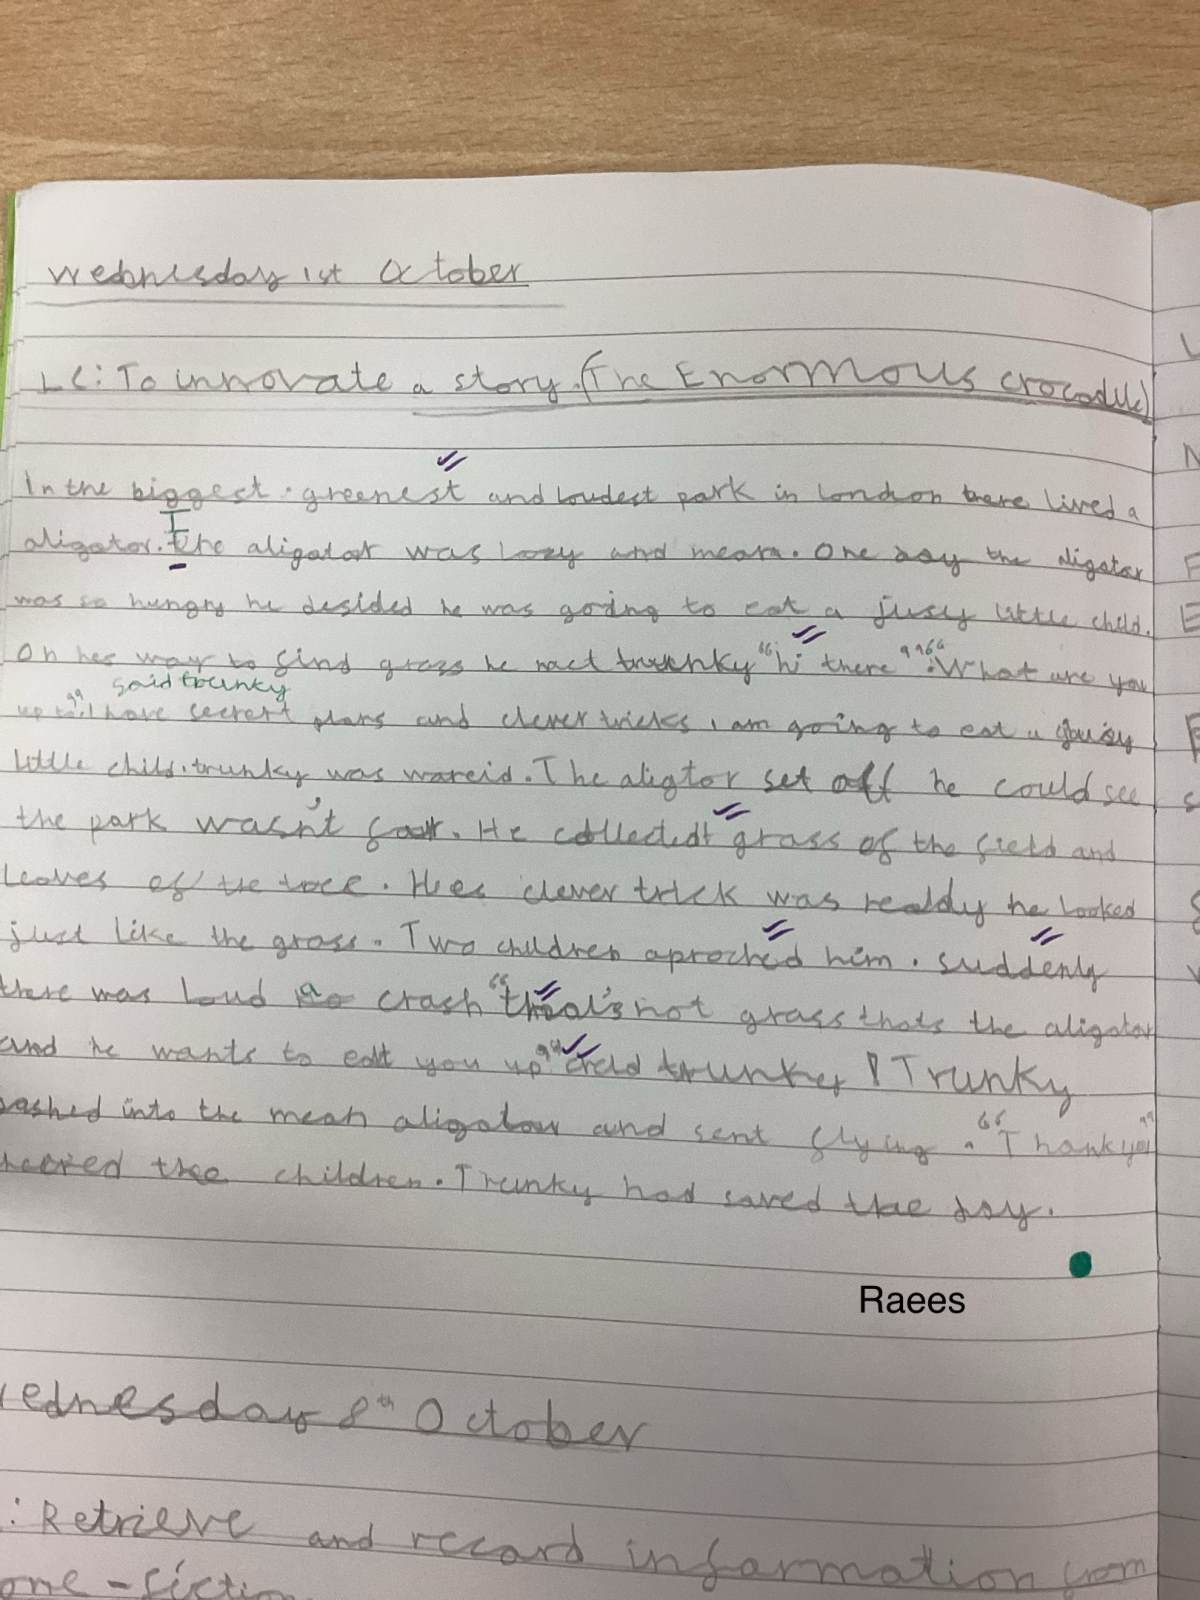 Wednesday 1st October
LC: To innovate a story. (The Enormous crocodile)
In the biggest, greenest and loudest park in London there lived a
aligator. The aligator was lazy and mean. One day the aligator
was so hungry he desided he was going to eat a jusy little child.
On hes way to find grass he mact trunky "hi there". "What are you
said trunky
up to" I have secrert plans and clever tricks i am going to eat a
little child. trunky was wareid. The aligtor set off he could see
the park wasn't far. He collected grass of the field and
leaves of the tree. Hes clever trick was ready he looked
just like the grass. Two children aproched him. suddenly
there was loud a crash "that's not grass thats the aligator
and he wants to eat you up" trunky! Trunky
into the mean aligator and sent flying. "Thank you"
the children. Trunky had saved the day.
Raees
8th October
: Retrieve and record information from